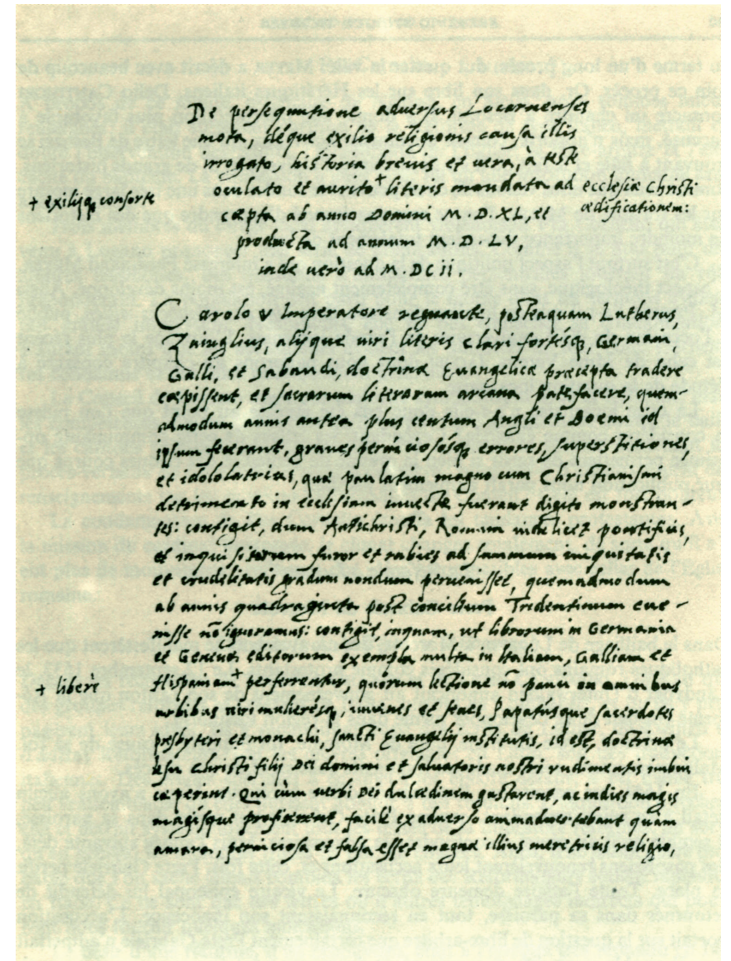 De persequutione adversus Locarnenses
mota, déque exilio religionis causa illis
irrogato, historia brevis et vera, à teste
oculato et aurito + literis mandata ad ecclesiæ Christi
ædificationem:
+ exilijq; consorte
cœpta ab anno Domini M.D.XL, et
producta ad annum M.D.LV,
inde verò ad M.DCII.
Carolo V Imperatore regnante, posteaquam Lutherus,
Zuinglius, alijque viri literis clari fortésq, Germani,
Galli, et Sabaudi, doctrinæ Evangelicæ præcepta tradere
cœpissent, et sacrarum literarum arcana patefacere, quem-
admodum annis antea plus centum Angli et Boemi id
ipsum fecerant, graves perniciosósq errores, superstitiones,
et idololatrias, quæ paulatim magno cum Christianismi
detrimento in ecclesiam invectæ fuerant digito monstran-
tes: contigit, dum Antichristi, Romani videlicet pontificis,
et inquisitorum furor et rabies ad summum iniquitatis
et crudelitatis gradum nondum pervenisset, quemadmodum
ab annis quadraginta post concilium Tridentinum eve-
nisse nō ignoramus: contigit, inquam, ut librorum in Germania
et Genevæ editorum exempla multa in Italiam, Galliam et
Hispaniam + perferrentur, quorum lectione nō pauci in omnibus
+ liberè
urbibus viri mulierésq, iuvenes et senes, Papatúsque sacerdotes
presbyteri et monachi, sancti Euangelij institutis, id est, doctrinæ
Iesu Christi filij Dei domini et salvatoris nostri rudimentis imbui
cœperint. Qui cùm verbi Dei dulcedinem gustarent, ac indies magis
magisque proficerent, facilè ex adverso animadvertebant quàm
amara, perniciosa et falsa esset magnæ illius meretricis religio,